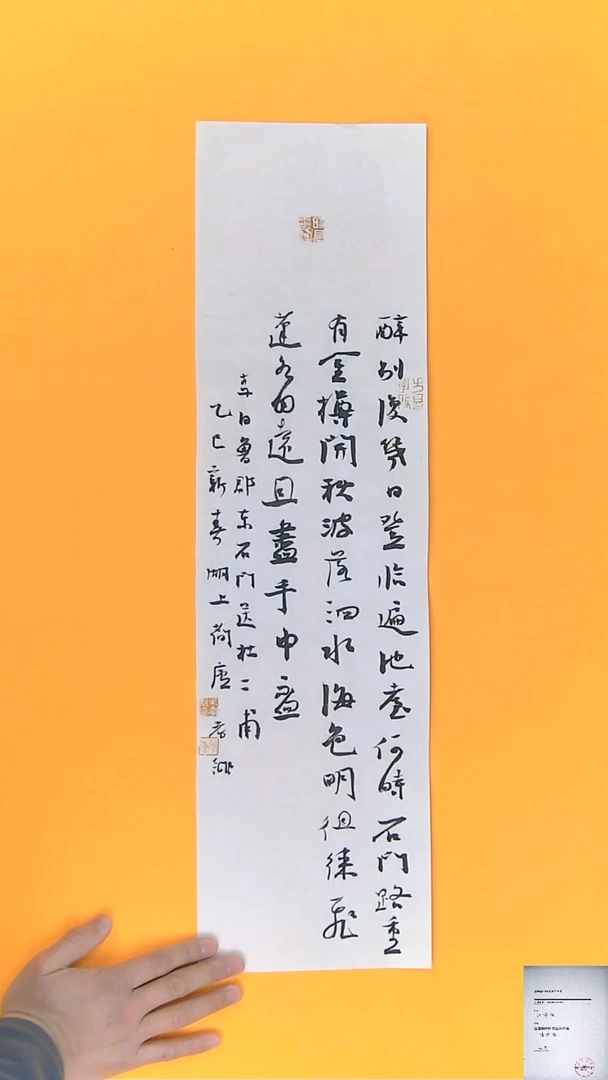 醉别復幾日登临遍池臺何時石门路重
有金樽開秋波落泗水海色明徂徕飛
蓬各自遠且盡手中盃
李白魯郡东石门送杜二甫
乙巳新春湖上荷唐